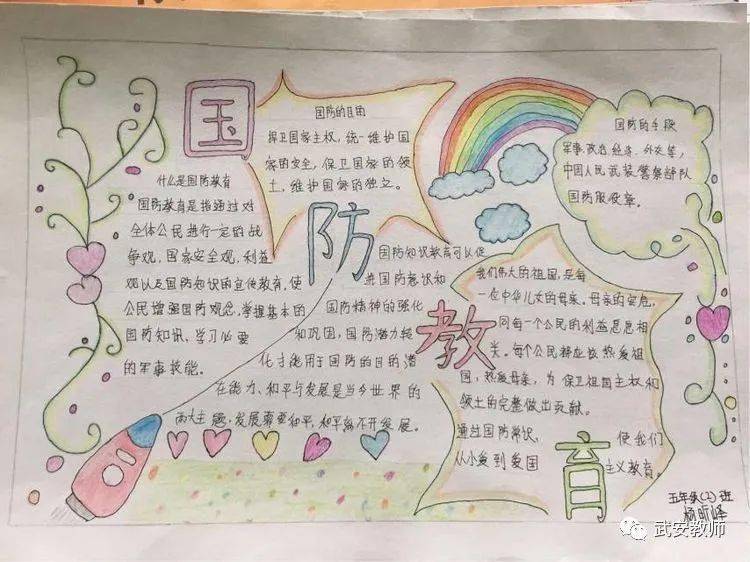 国
防
教
育
什么是国防教育
国防教育是指通过对
全体公民进行一定的战
争观,国家安全观,利益
观以及国防知识的宣传教育,使
公民增强国防观念,掌握基本的
国防知识、学习必要
的军事技能。
国防的目的
捍卫国家主权,统一维护国
家的安全,保卫国家的领
土,维护国家的独立。
国防的手段
军事、政治、经济、外交等,
中国人民武装警察部队
国防服役章。
国防知识教育可以促
进国防意识和
国防精神的强化
和巩固,国防潜力轻
化才能用于国防的目的潜
在能力、和平与发展是当今世界的
两大主题,发展需要和平,和平离不开发展。
我们伟大的祖国,是每
一位中华儿女的母亲。母亲的安危,
同每一个公民的利益息息相
关。每个公民都应该热爱祖
国,热爱母亲,为保卫祖国主权和
领土的完整做出贡献。
通过国防常识, 使我们
从小受到爱国 主义教育。
五年级(2)班
杨昕峄
武安教师